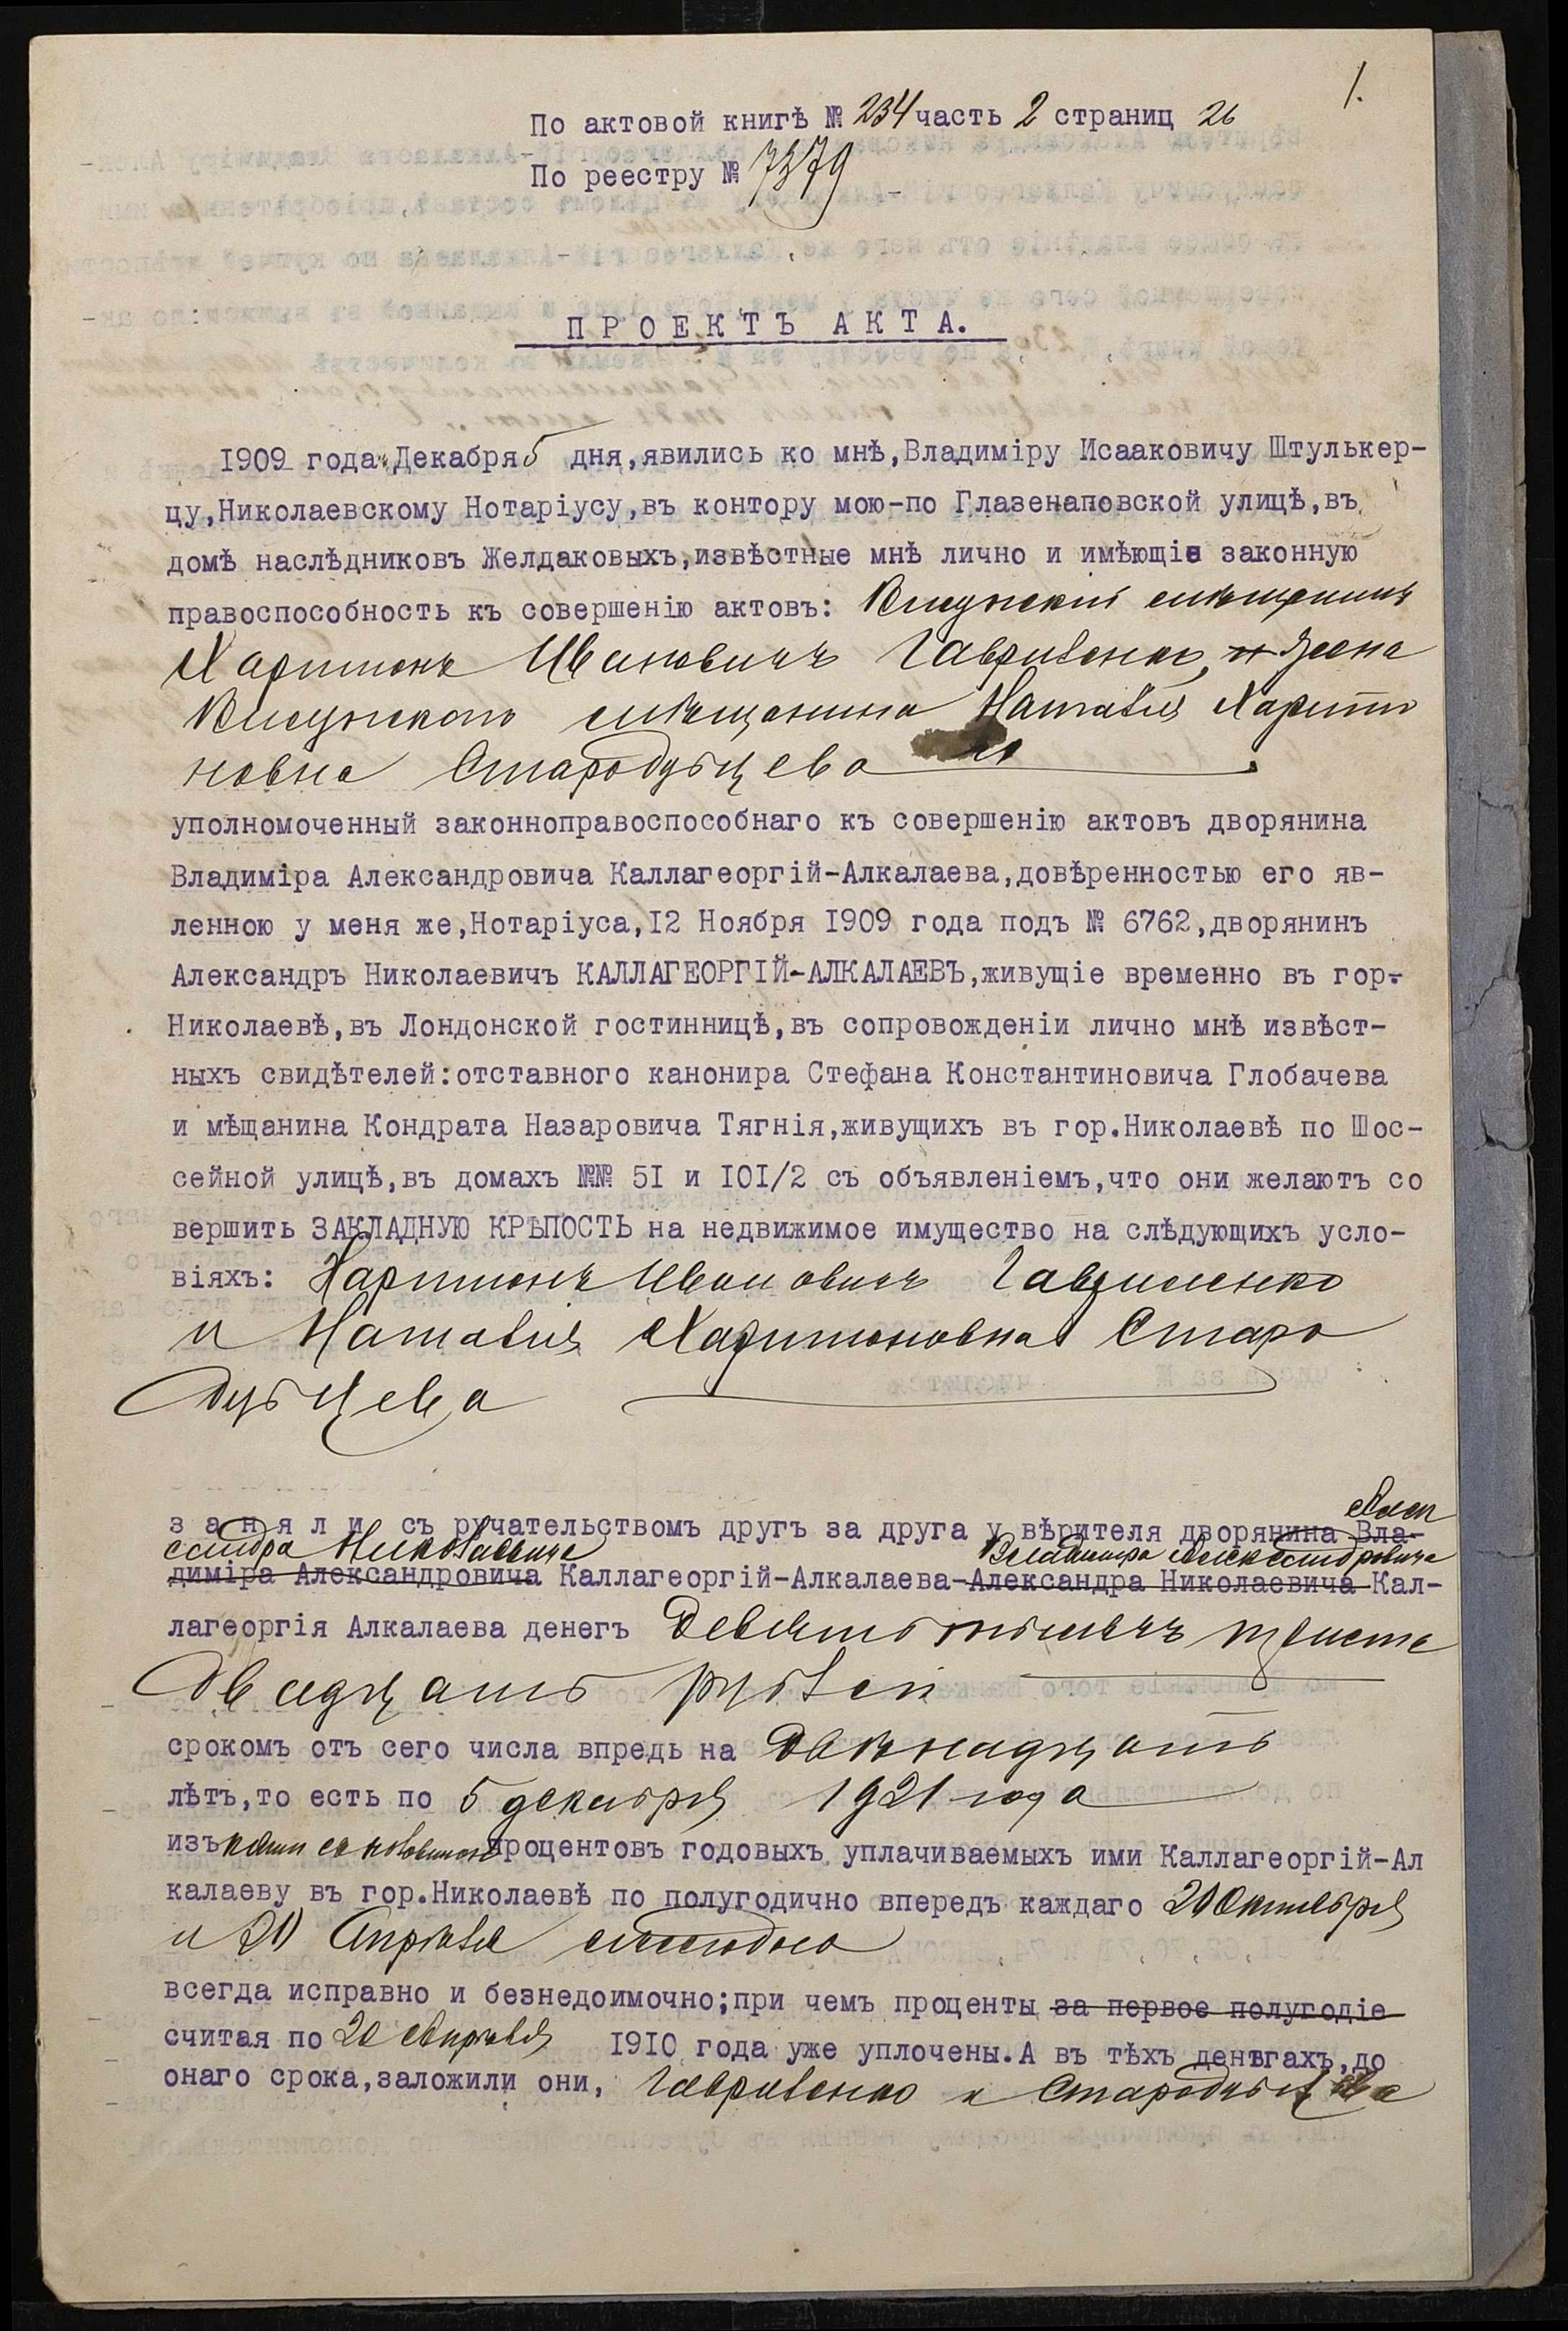 1.
По актовой книгѣ № 234 часть 2 страниц 26
По реестру № 7379
ПРОЕКТЪ АКТА.
1909 года Декабря 5 дня,явились ко мнѣ,Владиміру Исааковичу Штулькер-
цу,Николаевскому Нотаріусу,въ контору мою-по Глазенаповской улицѣ,въ
домѣ наслѣдниковъ Желдаковыхъ,извѣстные мнѣ лично и имѣющіе законную
правоспособность къ совершенію актовъ: Висунскій мѣщанинъ
Харитонъ Ивановичъ Гавриленко, и жена
Висунскаго мѣщанина Наталія Харито
новна Стародубцева и
уполномоченный законноправоспособнаго къ совершенію актовъ дворянина
Владиміра Александровича Каллагеоргій-Алкалаева,довѣренностью его яв-
ленною у меня же,Нотаріуса,12 Ноября 1909 года подъ № 6762,дворянинъ
Александръ Николаевичъ КАЛЛАГЕОРГІЙ-АЛКАЛАЕВЪ,живущіе временно въ гор.
Николаевѣ,въ Лондонской гостинницѣ,въ сопровожденіи лично мнѣ извѣст-
ныхъ свидѣтелей:отставного канонира Стефана Константиновича Глобачева
и мѣщанина Кондрата Назаровича Тягнія,живущихъ въ гор.Николаевѣ по Шос-
сейной улицѣ,въ домахъ №№ 51 и 101/2 съ объявленіемъ,что они желаютъ со
вершить ЗАКЛАДНУЮ КРѢПОСТЬ на недвижимое имущество на слѣдующихъ усло-
віяхъ: Харитонъ Ивановичъ Гавриленко
и Наталія Харитоновна Старо
дубцева
Алек
заняли съ ручательствомъ другъ за друга у вѣрителя дворянина Вла-
сандра Николаевича Владиміра Александровича
диміра Александровича Каллагеоргій-Алкалаева-Александра Николаевича Кал-
лагеоргія Алкалаева денегъ девять тысячъ триста
двадцать рублей
срокомъ отъ сего числа впредь на двѣнадцать
лѣтъ,то есть по 5 декабря 1921 года
изъ пяти съ половиною процентовъ годовыхъ уплачиваемыхъ ими Каллагеоргій-Ал
калаеву въ гор.Николаевѣ по полугодично впередъ каждаго 20 Октября
и 20 Апрѣля ежегодно
всегда исправно и безнедоимочно;при чемъ проценты за первое полугодіе
считая по 20 Апрѣля 1910 года уже уплочены.А въ тѣхъ деньгахъ,до
онаго срока,заложили они, Гавриленко и Стародубцева